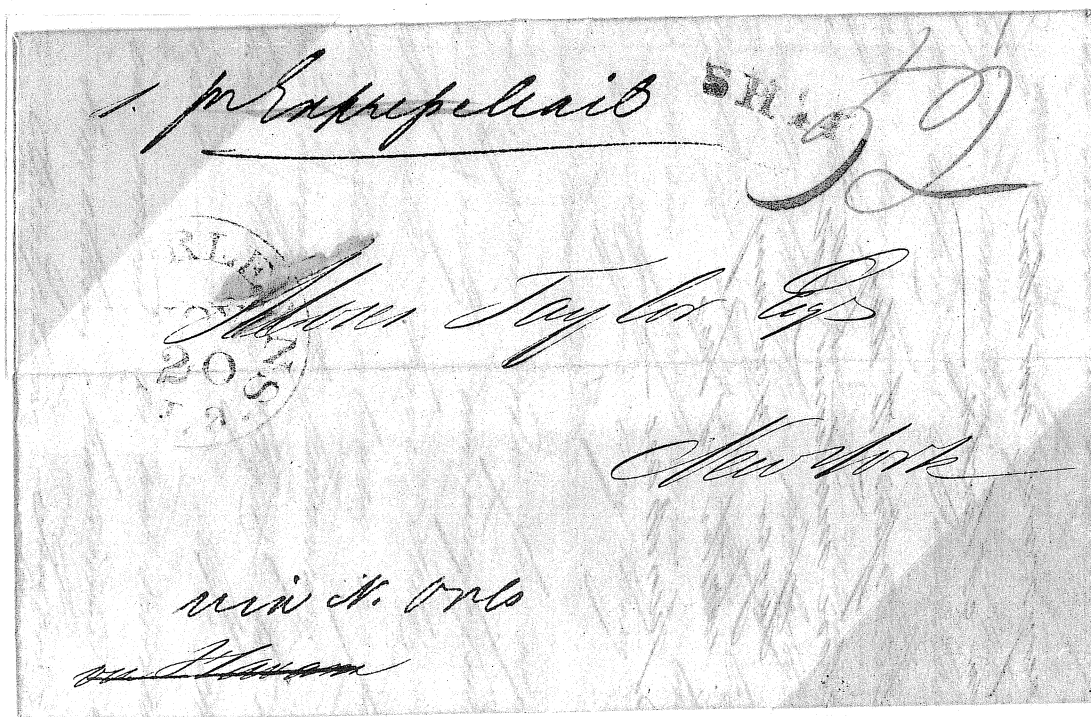 pr Express Mail
SHIP
52
ORLEANS
20
LA.
Moses Taylor Esq
New York
via N. Orls
via Havana